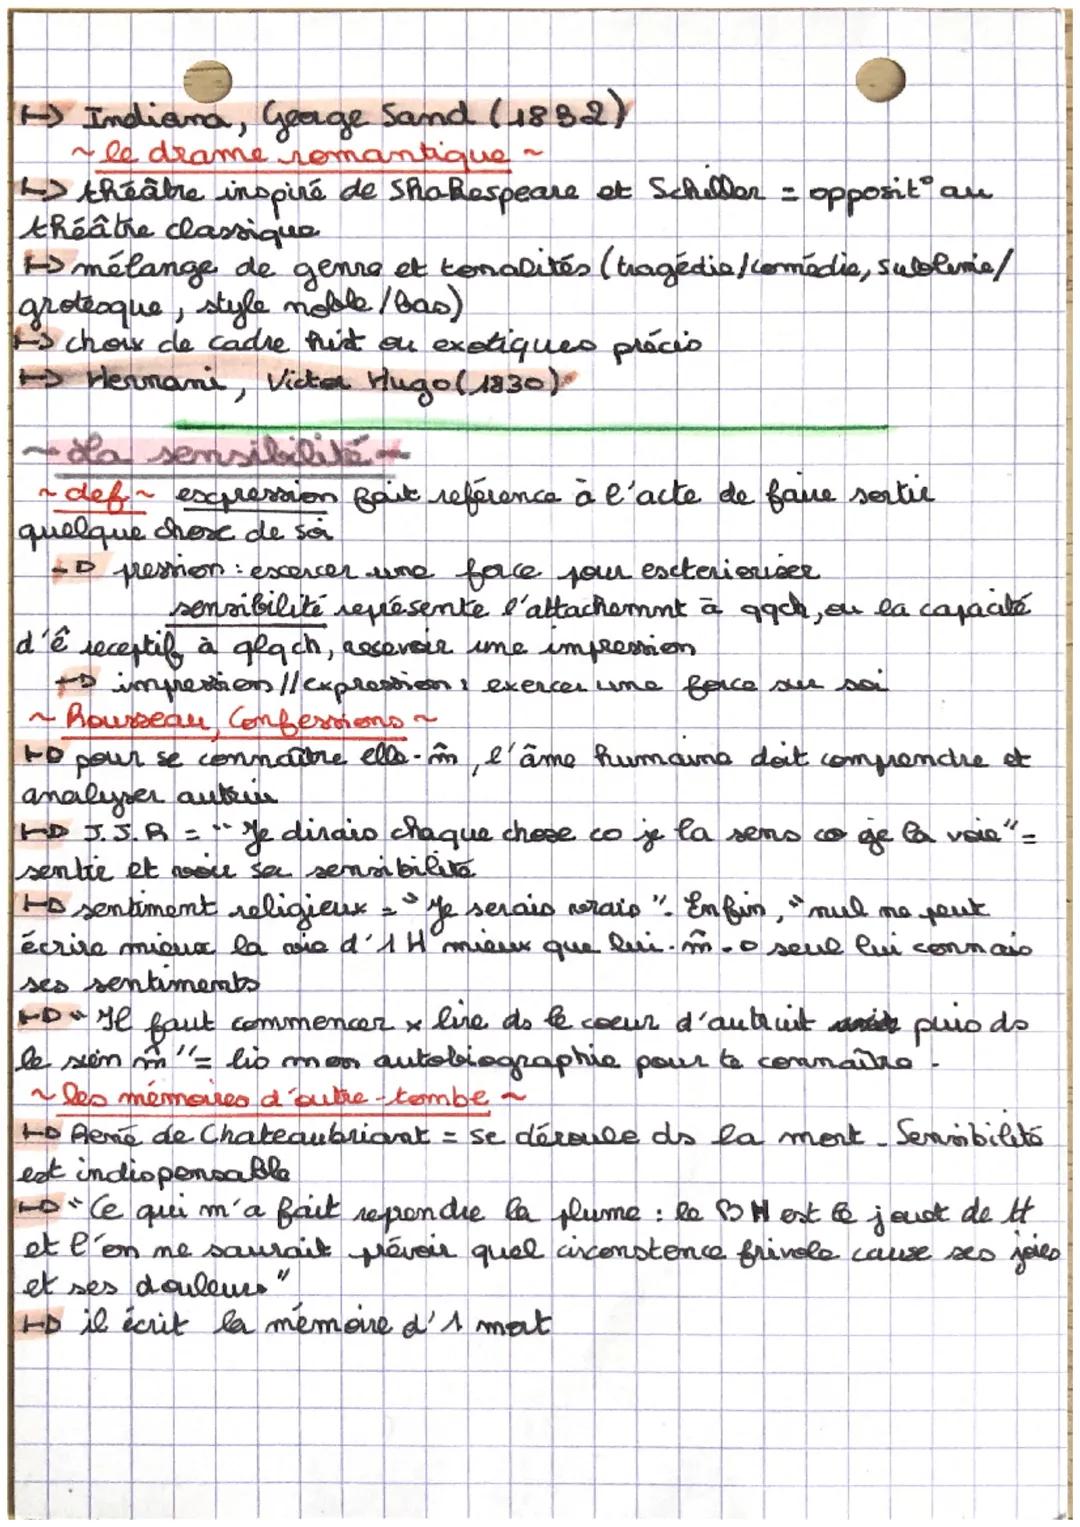 ↦ Indiana, George Sand (1832)
~ le drame romantique ~
↳ théâtre inspiré de Shakespeare et Schiller = opposit° au
théâtre classique
↦ mélange de genre et tonalités (tragédie/comédie, sublime/
grotesque, style noble/bas)
↦ choix de cadre hist ou exotiques précis
↦ Hernani, Victor Hugo (1830)
~ La sensibilité ~
~ def ~ expression fait référence à l'acte de faire sortir
quelque chose de soi
→ pression : exercer une force pour exterioriser
sensibilité représente l'attachemnt à qqch, ou la capacité
d'ê receptif à qlqch, recevoir une impression
↦ impression // expression : exercer une force sur soi
~ Rousseau, Confessions ~
↦ pour se connaître elle-m̂, l'âme humaine doit comprendre et
analyser autrui
↦ J.J.R = "Je dirais chaque chose co je la sens co je la vois" =
sentir et voir sa sensibilité
↦ sentiment religieux = "Je serais vrais". Enfin, "nul ne peut
écrire mieux la vie d'1 H mieux que lui-m̂ → seul lui connais
ses sentiments
↦ "Il faut commencer x lire ds le coeur d'autruit puis ds
le sien m̂" = lis mon autobiographie pour te connaître.
~ les mémoires d'outre-tombe ~
↦ René de Chateaubriant = se déroule ds la mort. Sensibilité
est indispensable
↦ "Ce qui m'a fait reprendre la plume : le BH est le jouet de tt
et l'on ne saurait prévoir quel circonstence frivole cause ses joies
et ses douleurs"
↦ il écrit la mémoire d'1 mort